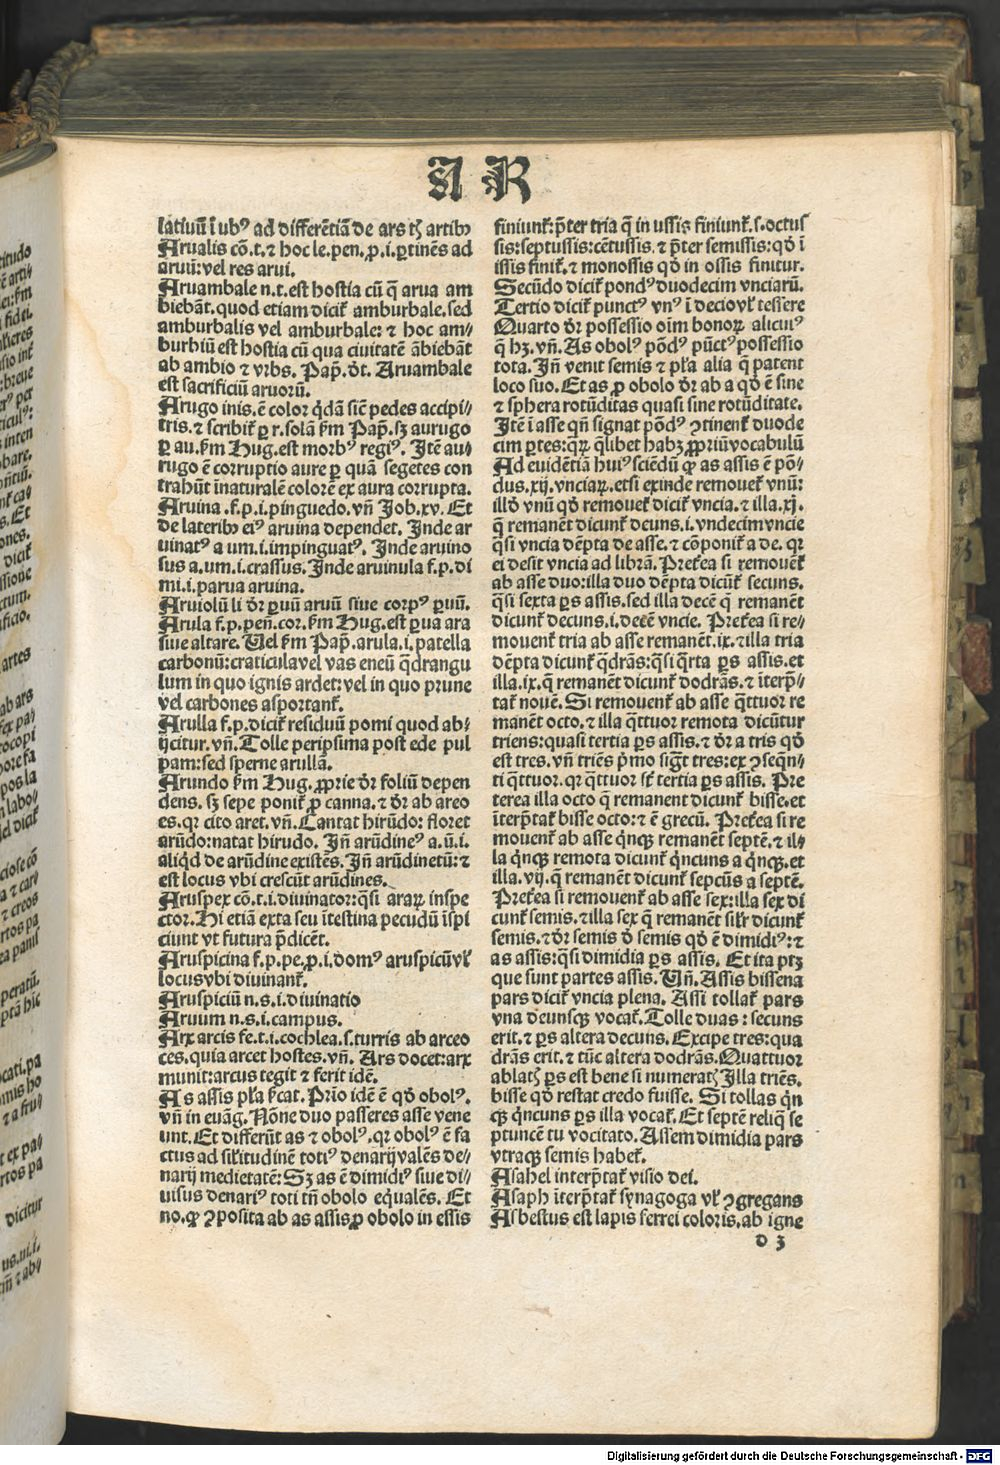 A R
latiuū ī ubꝰ ad differētiā de ars tꝫ artibꝫ
Arualis cō.t.⁊ hoc le.pen.ꝓ.i.ꝑtinēs ad
aruū:vel res arui.
Aruambale n.t.est hostia cū q̄ arua am
biebāt.quod etiam dicit̃ amburbale.sed
amburbalis vel amburbale:⁊ hoc am⸗
burbiū est hostia cū qua ciuitatē ābiebāt
ab ambio ⁊ vrbs. Pap̄.ðt. Aruambale
est sacrificiū aruorū.
Arugo inis.ē color q̇dā sic̄ pedes accipi⸗
tris.⁊ scribit̃ ꝑ r.solā ẜm Pap̄.sꝫ aurugo
ꝑ au.ẜm Hug.est morbꝰ regiꝰ. Itē au⸗
rugo ē corruptio aure ꝑ quā segetes con
trahūt īnaturalē colorē ex aura corrupta.
Aruina .f.p.i.pinguedo.vn̄ Job.xv. Et
de lateribꝫ eiꝰ aruina dependet. Inde ar
uinatꝰ a um.i.impinguatꝰ. Inde aruino
sus a.um.i.crassus.Inde aruinula f.p.di
mi.i.parua aruina.
Aruiolū li ðr ꝑuū aruū siue corpꝰ ꝑuū.
Arula f.p.pen̄.cor.ẜm Hug.est ꝑua ara
siue altare. Uel ẜm Pap̄.arula.i.patella
carbonū:craticula vel vas eneū q̄drangu
lum in quo ignis ardet:vel in quo prune
vel carbones asportant̃.
Arulla f.p.dicit̃ residuū pomi quod ab⸗
ijcitur.vn̄.Tolle peripsima post ede pul
pam:sed sperne arullā.
Arundo ẜm Hug.ꝓprie ðr foliū depen
dens.sꝫ sepe ponit̃ ꝓ canna.⁊ ðr ab areo
es.qr cito aret.vn̄.Cantat hirūdo: floret
arūdo:natat hirudo. In̄ arūdineꝰ a.ū.i.
aliq̇d de arūdine existēs.In̄ arūdinetū:⁊
est locus vbi crescūt arūdines.
Aruspex cō.t.i.diuinator:q̄si araꝝ inspe
ctor.Hi etiā exta seu ītestina pecudū īspi
ciunt vt futura p̄dicēt.
Aruspicina f.p.pe.ꝓ.i.domꝰ aruspicū vꝉ
locus vbi diuinant̃.
Aruspiciū n.s.i.diuinatio
Aruum n.s.i.campus.
Arx arcis fe.t.i.cochlea.s.turris ab arceo
ces.quia arcet hostes.vn̄. Ars docet:arx
munit:arcus tegit ⁊ ferit idē.
As assis pꝉa ẜcat. Prio idē ē qð obolꝰ.
vn̄ in euāg. Nōne duo passeres asse vene
unt. Et differūt as ⁊ obolꝰ.qr obolꝰ ē fa
ctus ad siꝉitudinē totiꝰ denarij valēs de⸗
narij medietatē: Sꝫ as ē dimidiꝰ siue di⸗
uisus denariꝰ toti tn̄ obolo eq̄ualēs. Et
no.ꝙ ꝯposita ab as assis ꝓ obolo in essis
finiunt̃:p̄ter tria q̄ in ussis finiunt̃.s.octus
sis:septussis:cētussis.⁊ p̄ter semissis:qð ī
issis finit̃.⁊ monossis qð in ossis finitur.
Secūdo dicit̃ pondꝰ duodecim vnciarū.
Tertio dicit̃ punctꝰ vnꝰ ī decio vꝉ tessere
Quarto ðr possessio oīm bonoꝝ alicuiꝰ
q̄ hꝫ.vn̄. As obolꝰ pōdꝰ pūctꝰ possessio
tota. In̄ venit semis ⁊ pꝉa alia q̄ patent
loco suo. Et as ꝓ obolo ðr ab a qð ē sine
⁊ sphera rotūditas quasi sine rotūditate.
Itē ī asse qn̄ signat pōdꝰ ꝯtinent̃ duode
cim ꝑtes:qꝝ q̄libet habꝫ ꝓpriū vocabulū
Ad euidētiā huiꝰ sciēdū ꝙ as assis ē pō⸗
dus.xij.vnciaꝝ.etsi exinde remouet̃ vnū:
illð vnū qð remouet̃ dicit̃ vncia.⁊ illa.xj.
q̄ remanēt dicunt̃ deuns.i.vndecim vncie
q̄si vncia dēpta de asse.⁊ cōponit̃ a de. qr
ei desit vncia ad librā. Pret̃ea si remouēt̃
ab asse duo:illa duo dēpta dicūt̃ secuns.
q̄si sexta ꝑs assis.sed illa decē q̄ remanēt
dicunt̃ decuns.i.decē vncie. Pret̃ea si re⸗
mouent̃ tria ab asse remanēt.ix.⁊ illa tria
dēpta dicunt̃ q̄drās:q̄si q̄rta ꝑs assis.et
illa.ix.q̄ remanēt dicunt̃ dodrās.⁊ īterp̄⸗
tat̃ nouē.Si remouent̃ ab asse q̄ttuor re
manēt octo.⁊ illa q̄ttuor remota dicūtur
triens:quasi tertia ꝑs assis.⁊ ðr a tris qð
est tres.vn̄ triēs p̄mo sigt̄ tres:ex ꝯseq̄n⸗
ti q̄ttuor.qr q̄ttuor st̄ tertia ꝑs assis. Pre
terea illa octo q̄ remanent dicunt̃ bisse.et
īterp̄tat̃ bisse octo:⁊ ē grecū. Pret̃ea si re
mouent̃ ab asse q̇nqꝫ remanēt septē.⁊ il⸗
la q̇nqꝫ remota dicunt̃ q̇ncuns a q̇nqꝫ.et
illa.vij.q̄ remanēt dicunt̃ sepcūs a septē.
Pret̃ea si remouent̃ ab asse sex:illa sex di
cunt̃ semis.⁊ illa sex q̄ remanēt siꝉr dicunt̃
semis.⁊ ðr semis ð semis qð ē dimidiꝰ:⁊
as assis:q̄si dimidia ꝑs assis. Et ita ptꝫ
que sunt partes assis. Un̄. Assis bissena
pars dicit̃ vncia plena. Assi tollat̃ pars
vna deunsqꝫ vocat̃.Tolle duas: secuns
erit.⁊ ꝑs altera decuns. Excipe tres:qua
drās erit.⁊ tūc altera dodrās.Quattuor
ablatꝫ ꝑs est bene si numeratꝫ Illa triēs.
bisse qð restat credo fuisse. Si tollas q̇n
qꝫ q̇ncuns ꝑs illa vocat̃. Et septē reliq̄ se
ptuncē tu vocitato. Assem dimidia pars
vtraqꝫ semis habet̃.
Asahel interp̄tat̃ visio dei.
Asaph īterp̄tat̃ synagoga vꝉ ꝯgregans
Asbestus est lapis ferrei coloris.ab igne
d 3
Digitalisierung gefördert durch die Deutsche Forschungsgemeinschaft - DFG